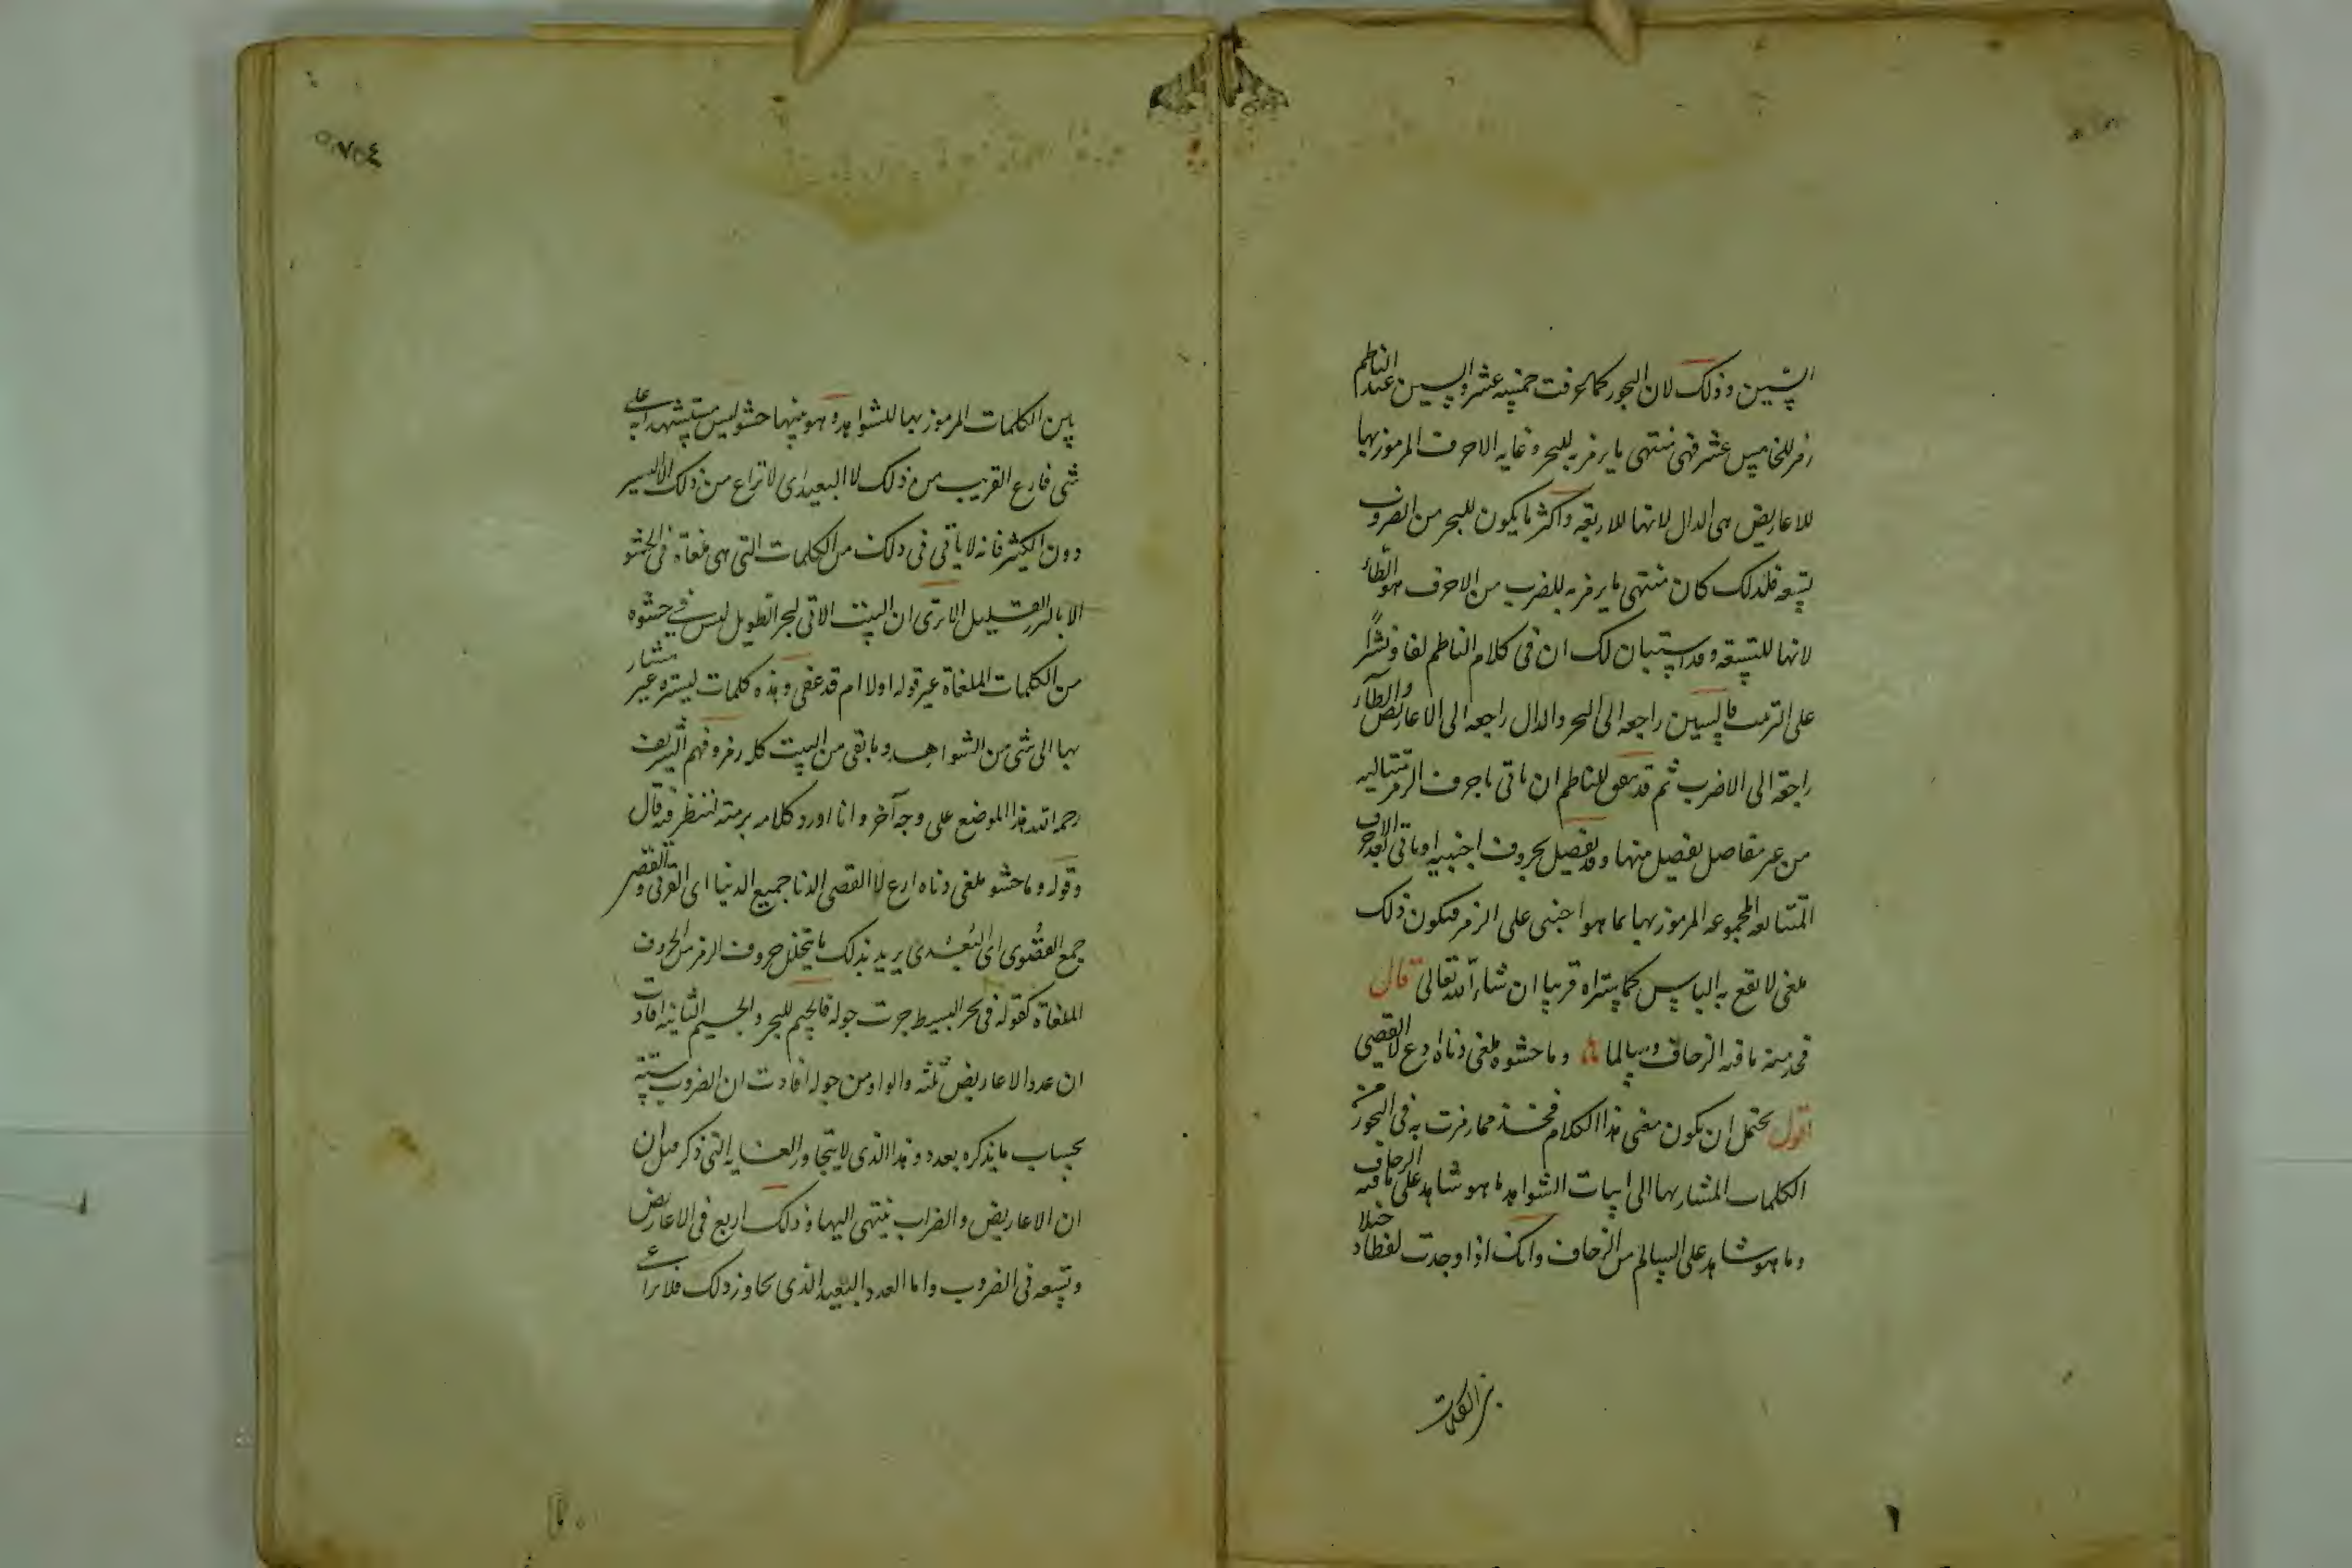 السين وذلك لان البحور كما عرفت خمسة عشر والسين عند الناظم
رمز للخامس عشر فهى منتهى ما يرمز به للبحر وغاية الاحرف المرموز بها
للاعاريض هى الدال لانها للاربعة واكثر ما يكون للبحر من الضروب
تسعة فلذلك كان منتهى ما يرمز به للضرب من الاحرف هو الطاء
لانها للتسعة وقد استبان لك ان فى كلام الناظم لفا ونشرًا
على الترتيب فالسين راجعة الى البحر والدال راجعة الى الاعاريض والطاء
راجعة الى الاضرب ثم قد يتفق للناظم ان ياتى باحرف الرمز متتالية
من غير فاصل يفصل منها وقد يفصل بحروف اجنبية او ياتى بعد الاحرف
المتتالية المجموعة المرموز بها بما هو اجنبى على الرمز فيكون ذلك
ملغى لا يقع به الباس كما ستراه قريبا ان شاء الله تعالى قال
فخذ منه ما فيه الزحاف وسالما وما حشوه ملغى دناه ارع لا القصى
اقول يحتمل ان يكون معنى هذا الكلام فخذ مما رمزت به فى البحور من
الكلمات المشار بها الى ابيات الشواهد ما هو شاهد على ما فيه الزحاف
وما هو شاهد على السالم من الزحاف وانك اذا وجدت لفظا دخيلا
بين الكلمات
بين الكلمات المرموز بها للشواهد وهو منها حشو ليس مستشهدا به على
شى فارع القريب من ذلك لا البعيد اى لا تراع من ذلك الا اليسير
دون الكثير فانه لا ياتى فى ذلك من الكلمات التى هى ملغاة فى الحشو
الا بالنزر القليل الا ترى ان البيت الاتى لبحر الطويل ليس فى حشوه
من الكلمات الملغاة غير قوله اولا ام قد عفى وهذه كلمات يسيرة غير مشار
بها الى شى من الشواهد وما بقى من البيت كله رمز وفهم الشريف
رحمه الله هذا الموضع على وجه آخر وانا اورد كلامه برمته لننظر فيه قال
وقوله وما حشو ملغى دناه ارع لا القصى الدنا جميع الدنيا اى القربى والقصى
جمع القصوى اى البعدى يريد بذلك ما يتخلل حروف الرمز من الحروف
الملغاة كقوله فى بحر البسيط جرت جوله فالجيم للبحر والجيم الثانية افادت
ان عدد الاعاريض ثلثه والواو من جوله افادت ان الضروب ستة
بحساب ما يذكره بعده وهذا الذى لا يتجاوز الغاية التى ذكر قبل ان
ان الاعاريض والضراب ينتهى اليها وذلك اربع فى الاعاريض
وتسعة فى الضروب واما العدد البعيد الذى يجاوز ذلك فلا يراعى